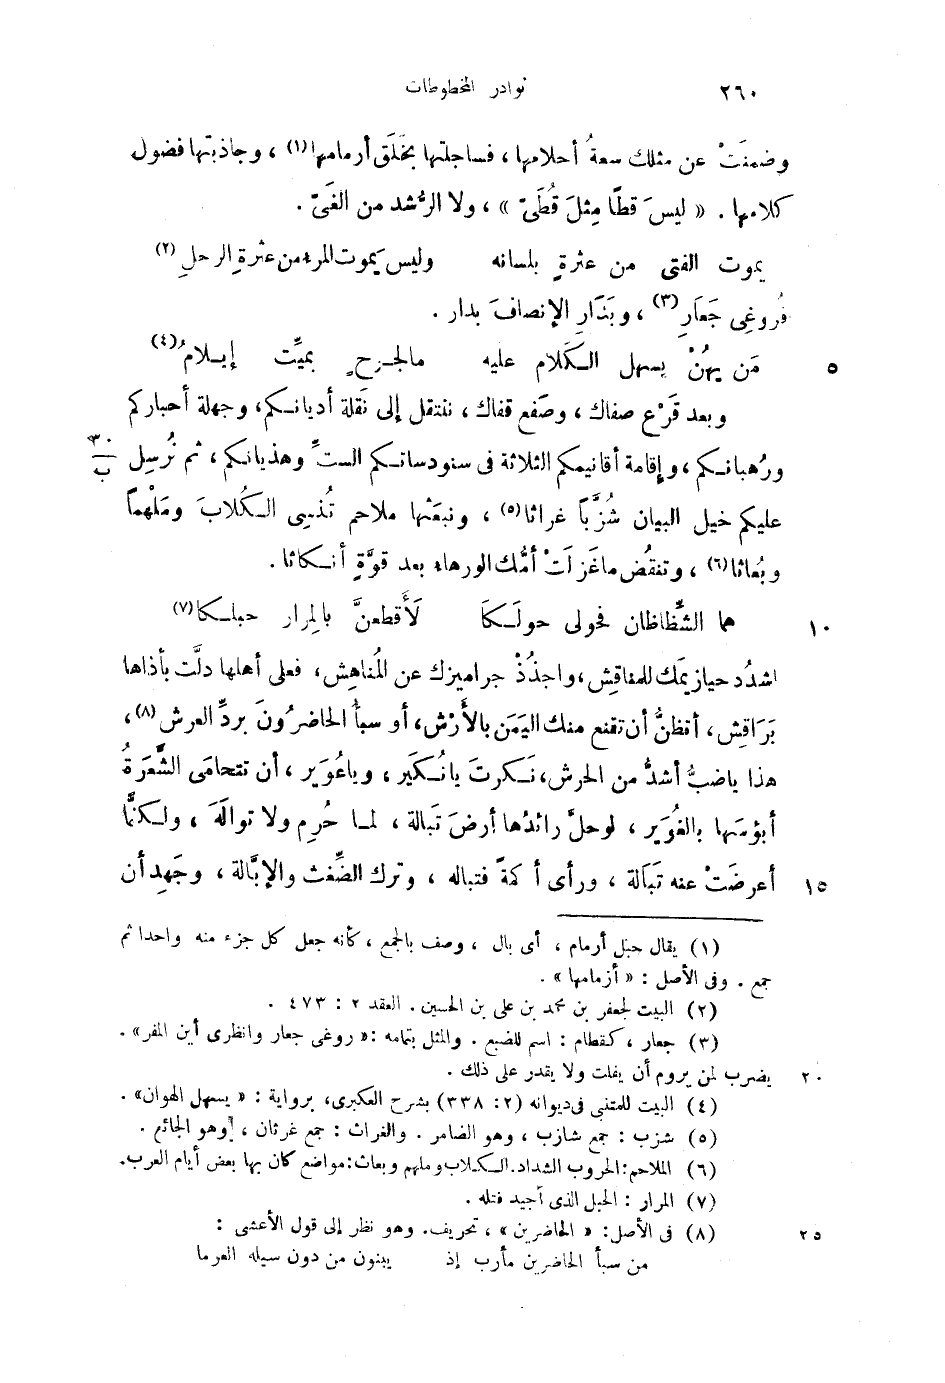 ٢٦٠ نوادر المخطوطات
وضمنَتْ عن مثلك سعةُ أحلامها ، فساجلتها بخَلَق أرمامها(١) ، وجاذبتها فضول
كلامها . « ليسَ قطًا مِثلَ قُطَىّ » ، ولا الرُّشد من الغَىّ .
يموت الفتى من عثرةٍ بلسانه وليس يَموت المرء من عثرةِ الرجلِ (٢)
رُوغِى جَعَارِ (٣) ، وبَدَارِ الإنصافَ بدار .
٥ مَن يهُنْ يسهل الكَلام عليه مالجرحٍ بميِّت إيلامُ (٤)
وبعد قَرْع صفاك ، وصَفع قفاك ، ننتقل إلى نَقلة أديانكم، وجهلة أحباركم
ورُهبانكم ، وإقامة أقانيمكم الثلاثة فى سنودساتكم الستّ وهذيانكم ، ثم نُرسِل
٣٠
ب
عليكم خيل البيان شُزَّباً غراثا(٥) ، ونبعثها ملاحم تُنسِى الكُلابَ ومَلْهماً
وبُعاثا(٦) ، وتنقُض ما غَزلَتْ أمُّك الورهاء بعد قوَّةٍ أنكاثا .
١٠ هما الشِّظاظان فحولى حولَكَا لَأَقطعنَّ بالمِرار حبلكا(٧)
اشدُد حيازيمَك للمناقِش، واجذُذْ جراميزك عن المُناهِش ، فعلى أهلها دلَّت بأذاها
بَرَاقِش ، أتظنُّ أن تقنع منك اليَمَن بالأَرْش، أو سبأُ الحاضرُونَ بردِّ العرش (٨) ،
هذا ياضبُّ أشدُّ من الحرش، نَكرتَ يانُكَير ، وياعُوَير ، أن تتحامَى الشَّعَرةُ
أبؤسَها بالغُوَير ، لوحلَّ رائدُها أرضَ تَبالة ، لما حُرِم ولا توالَهَ ، ولكنَّما
١٥ أعرضَتْ عنه تَبَالة ، ورأى أكمةً فتباله ، وترك الضِّغث والإبَّالة ، وجَهِد أن
(١) يقال حبل أرمام ، أى بال ، وصف بالجمع ، كأنه جعل كل جزء منه واحدا ثم
جمع . وفى الأصل : « أزمامها » .
(٢) البيت لجعفر بن محمد بن على بن الحسين . العقد ٢ : ٤٧٣ .
(٣) جعار ، كقطام : اسم للضبع . والمثل بتمامه : « روغى جعار وانظرى أين المفر » .
٢٠ يضرب لمن يروم أن يفلت ولا يقدر على ذلك .
(٤) البيت للمتنبى فى ديوانه (٢ : ٣٣٨) بشرح العكبرى، برواية : « يسهل الهوان» .
(٥) شزب : جمع شازب ، وهو الضامر . والغراث : جمع غرثان ، وهو الجائع .
(٦) الملاحم: الحروب الشداد. الكلاب وملهم وبعاث: مواضع كان بها بعض أيام العرب.
(٧) المرار : الحبل الذى أجيد فتله .
٢٥ (٨) فى الأصل: « الحاضرين » ، تحريف. وهو نظر إلى قول الأعشى :
من سبأ الحاضرين مأرب إذ يبنون من دون سيله العرما